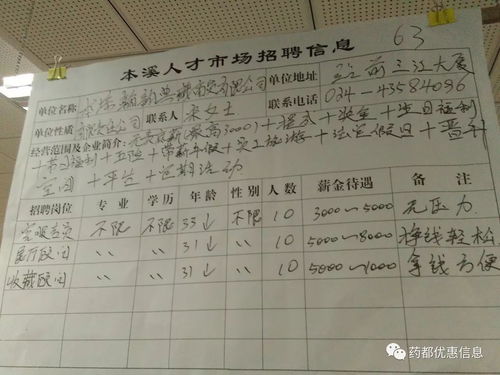 63
本溪人才市场招聘信息
单位名称 有限公司 单位地址 站前三江大厦
单位性质 有限责任公司 联系人 宋女士 联系电话 024-43584096
经营范围及企业简介: 无责底薪(最高3000)+提成+奖金+生日福利
+节日福利+五险+带薪年假+员工旅游+法定假日+晋升
空间 +
招聘岗位 专业 学历 年龄 性别 人数 薪金待遇 备注
客服专员 不限 不限 35↓ 不限 10 3000~5000 无压力
顾问 〃 〃 31↓ 〃 10 5000~8000 挣钱轻松
收藏顾问 〃 〃 31↓ 〃 10 5000~1000 拿钱方便
药都优惠信息